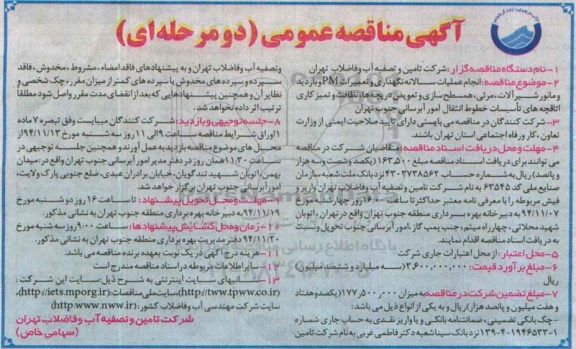 آگهی مناقصه عمومی (دو مرحله‌ای)
۱- نام دستگاه مناقصه گزار: شرکت تامین و تصفیه آب و فاضلاب تهران
۲- موضوع مناقصه: انجام عملیات سالانه نگهداری و تعمیرات PM و بازدید
و مانور شیرآلات، مرئی، همسطح سازی و تعویض دریچه ها، نظافت و تمیز کاری
اتاقچه های تأسیسات خطوط انتقال امور آبرسانی جنوب تهران
۳- شرکت کنندگان در مناقصه می بایستی دارای تایید صلاحیت ایمنی از وزارت
تعاون، کار و رفاه اجتماعی استان تهران باشند.
۴- مهلت و محل دریافت اسناد مناقصه: متقاضیان شرکت در مناقصه
می توانند برای دریافت اسناد مناقصه مبلغ ۱۶۳,۵۰۰ (یکصد و شصت و سه هزار
و پانصد) ریال به شماره حساب ۴۳۰۳۷۳۸۵۶۲ نزد بانک ملت شعبه سازمان
صنایع ملی کد ۶۳۵۴۵ به نام شرکت تامین و تصفیه آب و فاضلاب تهران واریز و
فیش مربوطه را با معرفی نامه معتبر حداکثر تا ساعت ۱۶:۰۰ روز چهارشنبه مورخ
۹۴/۱۱/۰۷ به دبیرخانه بهره برداری منطقه جنوب تهران واقع در تهران، اتوبان
شهید محلاتی، چهارراه میثم، جنب پمپ گاز امور آبرسانی جنوب تحویل و نسبت
به دریافت اسناد مناقصه اقدام نمایند.
۵- محل اعتبار: از محل اعتبارات جاری شرکت
۶- مبلغ برآورد قیمت: ۳,۶۰۰,۰۰۰,۰۰۰ (سه میلیارد و ششصد میلیون)
ریال
۷- مبلغ تضمین شرکت در مناقصه به میزان ۱۷۷,۵۰۰,۰۰۰ (یکصد و هفتاد
و هفت میلیون و پانصد هزار) ریال و به یکی از انواع ذیل می باشد:
-چک بانکی تضمینی، ضمانتنامه بانکی و یا واریز نقدی به حساب جاری شماره
نزد بانک سینا شعبه دکتر فاطمی غربی به نام شرکت تامین
و تصفیه آب و فاضلاب تهران و به پیشنهادهای فاقد امضاء، مشروط، مخدوش، فاقد
سپرده و سپرده های مخدوش یا سپرده های کمتر از میزان مقرر، چک شخصی و
نظایر آن و همچنین پیشنهادهایی که بعد از انقضای مدت مقرر واصل شود مطلقاً
ترتیب اثر داده نخواهد شد.
۸- جلسه توجیهی و بازدید: شرکت کنندگان میبایست وفق تبصره ۷ ماده
۱ اوراق شرایط مناقصه ساعت ۹ الی ۱۱ روز سه شنبه مورخ ۹۴/۱۱/۱۳ از
محل های موضوع مناقصه بازدید به عمل آورند و همچنین جلسه توجیهی در
ساعت ۱۱:۳۰ همان روز در دفتر مدیر امور آبرسانی جنوب تهران واقع در: میدان
بهمن، اتوبان شهید تندگویان، خیابان برادران عبدی، ضلع جنوبی پارک ولایت،
امور آبرسانی جنوب تهران برگزار خواهد شد.
۹- مهلت و محل تحویل پیشنهاد: تا ساعت ۱۶ روز دوشنبه مورخ
۹۴/۱۱/۱۹ به دبیرخانه بهره برداری منطقه جنوب تهران به نشانی مذکور.
۱۰- زمان و محل گشایش پیشنهادها: ساعت ۹:۰۰ روز سه شنبه مورخ
۹۴/۱۱/۳۰ دفتر مدیریت بهره برداری منطقه جنوب تهران به نشانی مذکور.
۱۱- هزینه درج آگهی در یک نوبت به عهده برنده مناقصه می باشد.
۱۲- سایر اطلاعات مربوطه در اسناد مناقصه مندرج است
۱۳- نشانی های سایت اینترنتی به شرح ذیل: سایت این شرکت:
(http://tww.tpww.co.ir) سایت ملی مناقصات: (http://iets.mporg.ir)،
سایت شرکت مهندسی آب و فاضلاب کشور: (http:www.nww.ir)
شرکت تامین و تصفیه آب و فاضلاب تهران
(سهامی خاص)